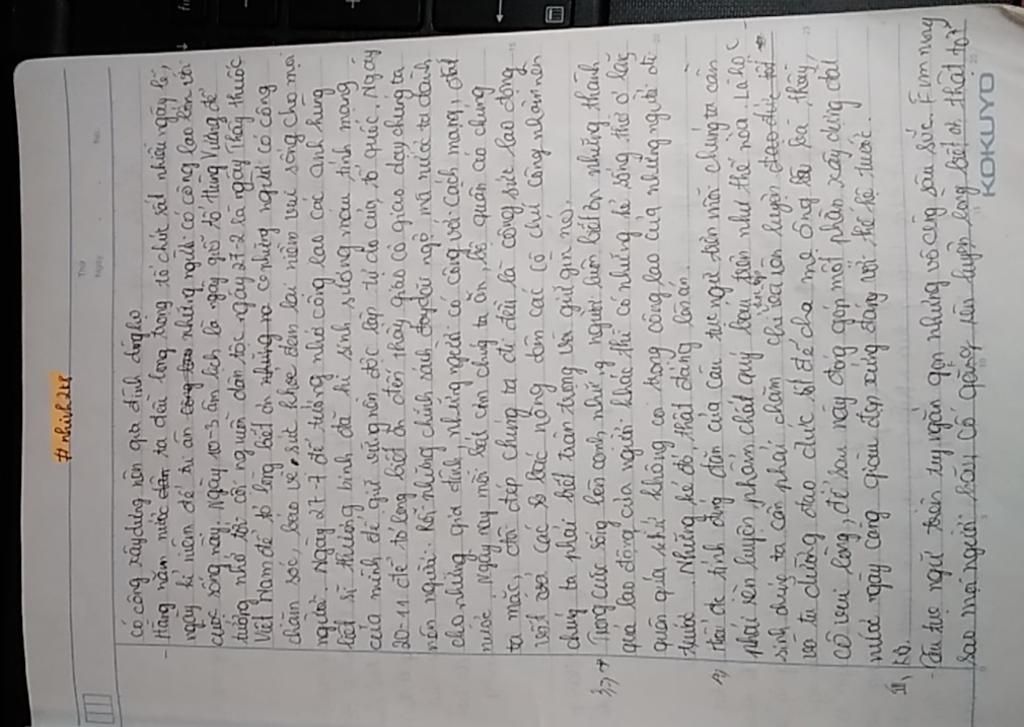 #nhinh2k8
Thứ
Ngày
No.
có công xây dựng nên gia đình dòng họ
- Hàng năm nước dân ta đều long trọng tổ chức rất nhiều ngày lễ,
ngày kỉ niệm để tri ân công lao những người có công lao lớn với
cuộc sống này. Ngày 10-3 âm lịch là ngày giỗ tổ Hùng Vương để
tưởng nhớ tới cội nguồn dân tộc, ngày 27-2 là ngày Thầy thuốc
Việt Nam để tỏ lòng biết ơn những những người có công
chăm sóc, bảo vệ sức khỏe đem lại niềm vui sống cho mọi
người. Ngày 27-7 để tưởng nhớ công lao các anh hùng
liệt sĩ thương binh đã hi sinh xương máu, tính mạng
của mình để giữ vững nền độc lập tự do của tổ quốc. Ngày
20-11 để tỏ lòng biết ơn đến thầy giáo cô giáo dạy chúng ta
nên người. Rồi những chính sách đãi ngộ mà nước ta dành
cho những gia đình, những người có công với Cách mạng, đất
nước. Ngày nay mỗi bát cơm chúng ta ăn, bộ quần áo chúng
ta mặc, đôi dép chúng ta đi đều là công sức lao động
vất vả các bác nông dân các cô chú công nhân nên
chúng ta phải biết trân trọng và giữ gìn nó.
Trong cuộc sống bên cạnh những người luôn biết ơn những thành
quả lao động của người khác thì có những kẻ sống thờ ơ lãng
quên quá khứ không coi trọng công lao của những người đi
trước. Những kẻ đó, thật đáng lên án.
Từ đó tính đúng đắn của câu tục ngữ trên mỗi chúng ta cần
phải rèn luyện phẩm chất quý báu trên như thế nào. Là học
sinh chúng ta cần phải chăm chỉ học tập rèn luyện đạo đức tốt
và tu dưỡng đạo đức tốt để cha mẹ ông bà, thầy
cô vui lòng, để sau này đóng góp một phần xây dựng đất
nước ngày càng giàu đẹp xứng đáng với thế hệ trước.
III, KB.
- Câu tục ngữ trên tuy ngắn gọn nhưng vô cùng sâu sắc. Em may
sao mọi người hãy cố gắng rèn luyện lòng biết ơn thật tốt
KOKUYO